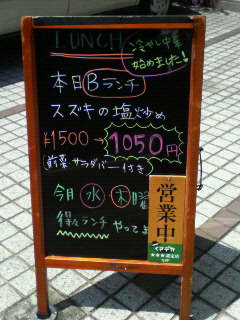 LUNCH
冷やし中華
始めました!
本日Bランチ
スズキの塩炒め
¥1500→1050円
(前菜サラダバー付き)
今月 水 木 曜
得々ランチ やってま
営業中
★★★